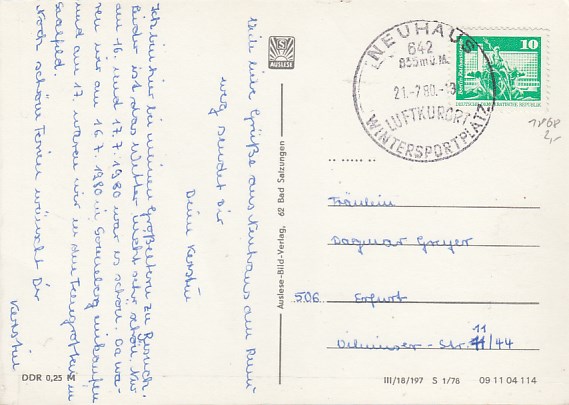 Viele liebe Grüße aus Neuhaus am Renn-
weg sendet Dir
Deine Kerstin
Ich bin hier bei meinen Großeltern zu Besuch.
Leider ist das Wetter nicht sehr schön. Nur
am 16. und 17.7.1980 war es schön. Da wa-
ren wir am 16.7.1980 in Sonneberg einkaufen
und am 17. waren wir in den Feengrotten in
Saalfeld.
Noch schöne Ferien wünscht Dir
Kerstin
DDR 0,25 M
AUSLESE
Auslese-Bild-Verlag, 62 Bad Salzungen
NEUHAUS
642
835 m ü. M.
21.-7.80.-13
LUFTKURORT
WINTERSPORTPLATZ
10
DEUTSCHE DEMOKRATISCHE REPUBLIK
Fräulein
Dagmar Greyer
506 Erfurt
11
/44
III/18/197 S 1/78 09 11 04 114